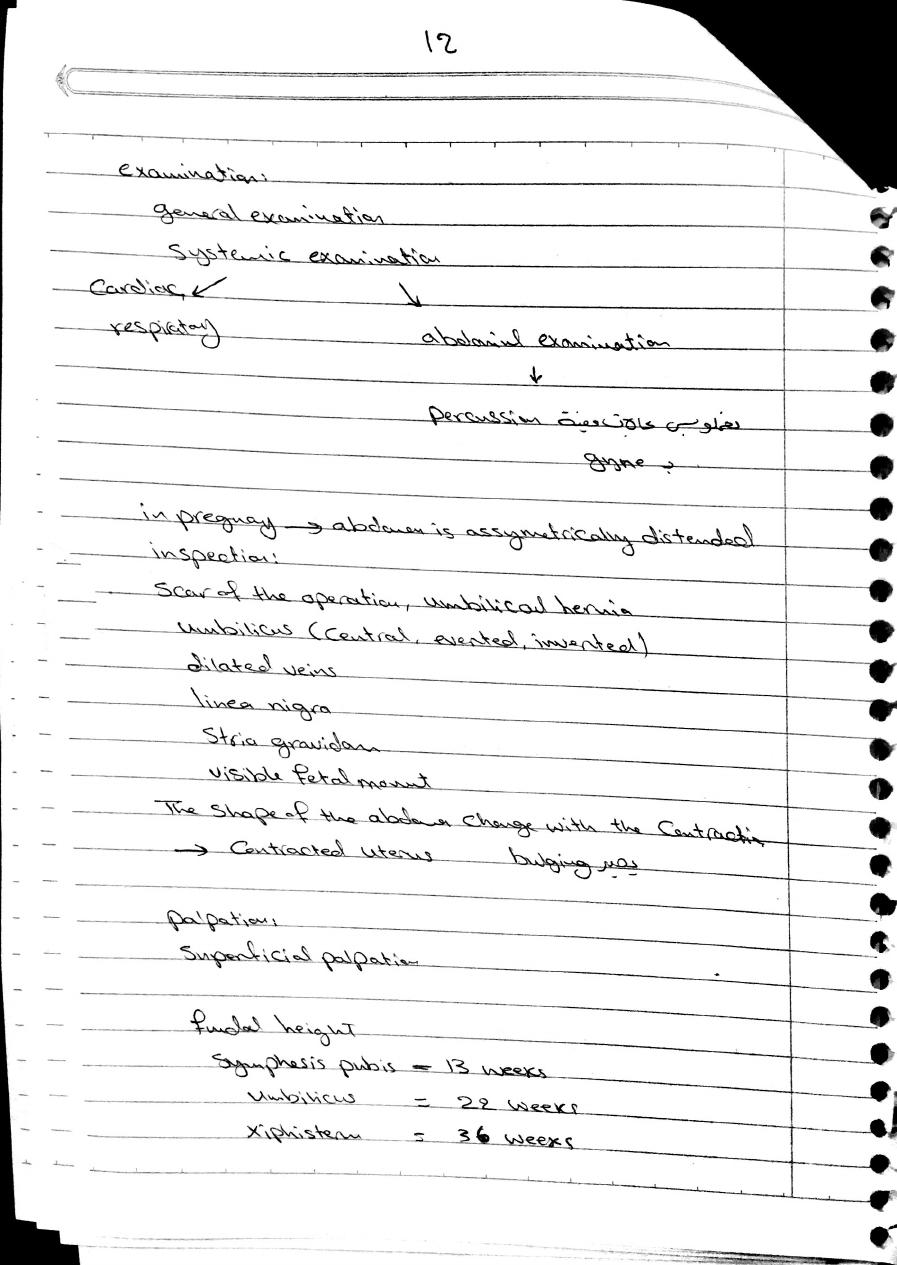 12
examination:
general examination
Systemic examination
Cardiac, ↙ ↘
respiratory
abdominl examination
↓
percussion
gyne ب
in pregnay → abdomen is assymetrically distended
inspection:
Scar of the operation, umbilical hernia
umbilicus (Central, everted, inverted)
dilated veins
linea nigra
Stria gravidam
visible fetal
The shape of the abdomen change with the Contraction
→ Contracted uterus bulging يصير
palpation:
Superficial palpation
fundal height
Symphesis pubis = 13 weeks
umbilicus = 22 weeks
xiphistern = 36 weeks